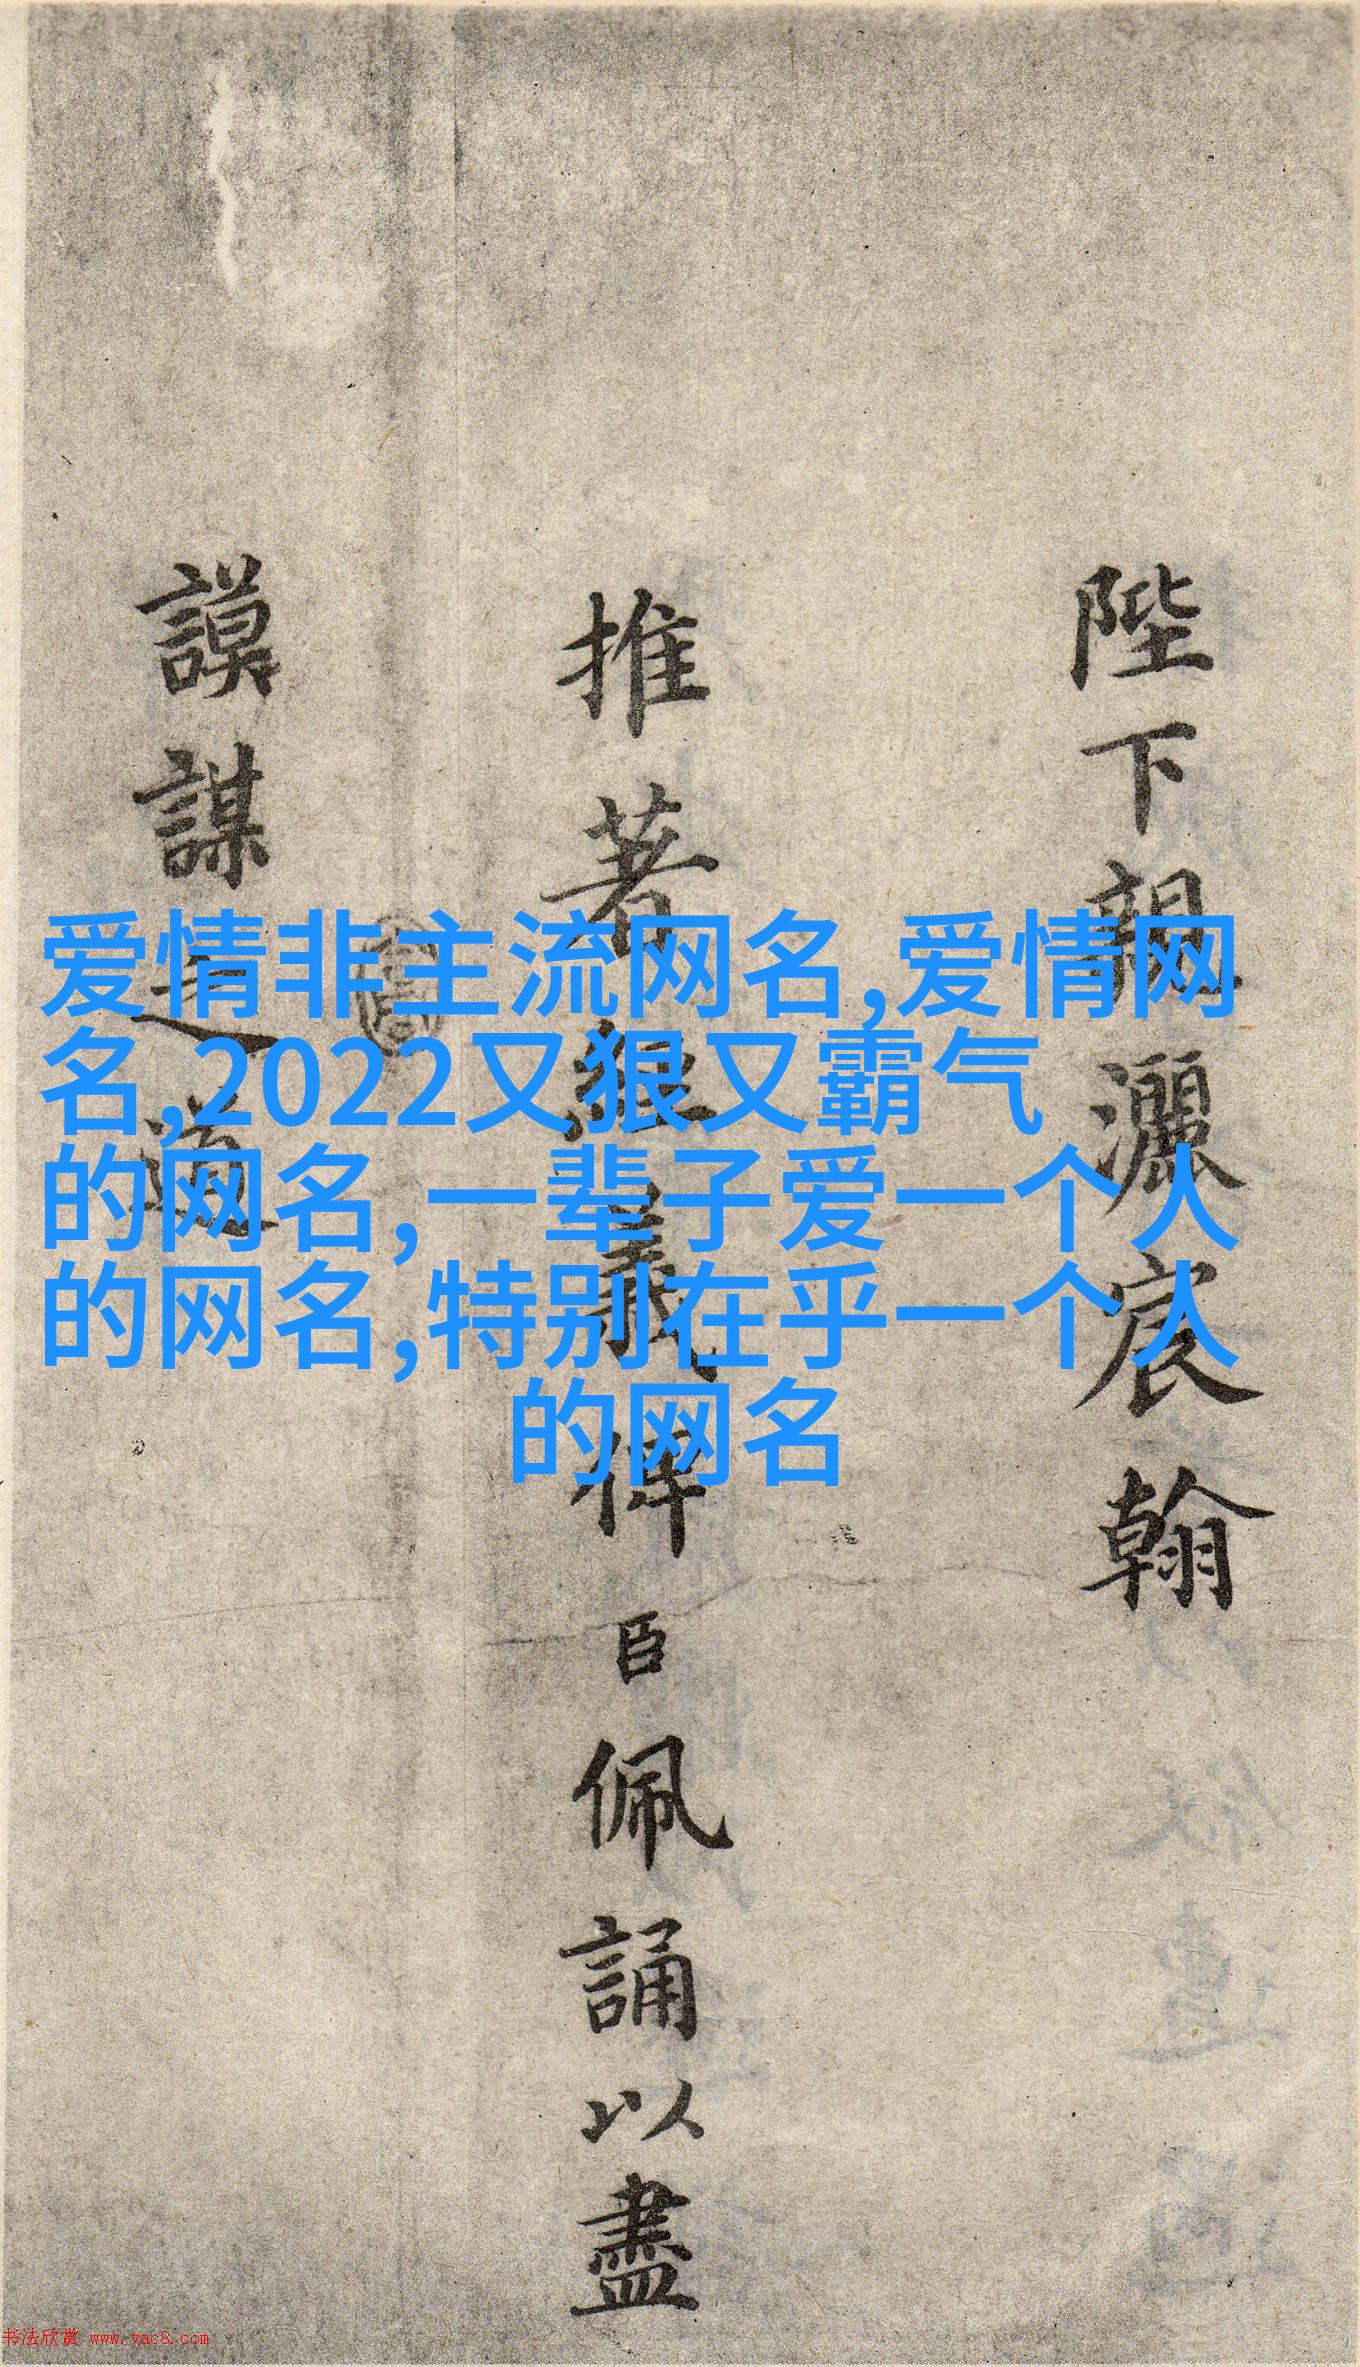 陛下親灑宸翰
推著經義俾臣佩誦以盡
謨謀之道
爱情非主流网名,爱情网
名,2022又狠又霸气
的网名,一辈子爱一个人
的网名,特别在乎一个人
的网名
书法欣赏 www.yac8.com